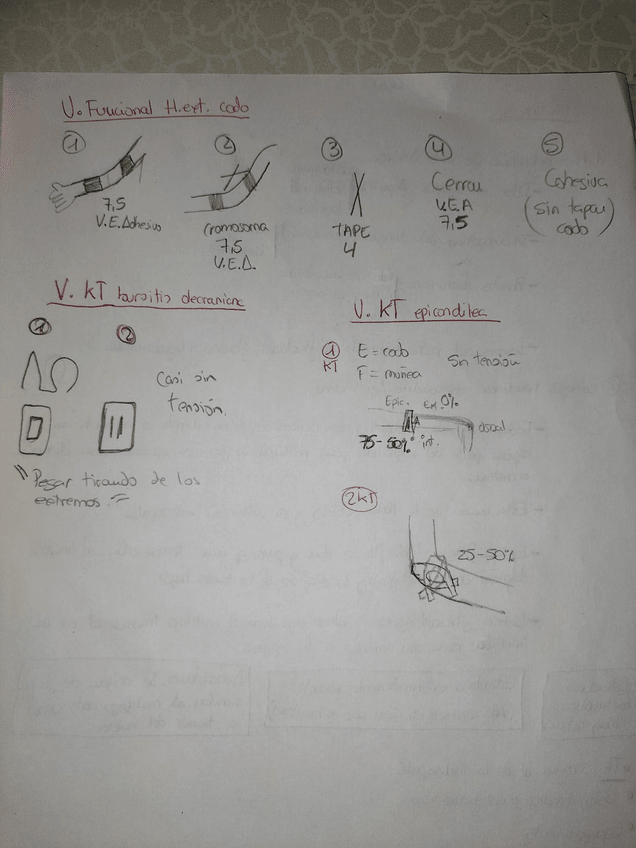 V. Funcional H.ext. codo
1
7,5
V.E.Adhesivo
2
Cromosoma
7,5
V.E.A.
3
TAPE
4
4
Cerrar
V.E.A
7,5
5
Cohesiva
(Sin tapar
codo)
V. KT bursitis olecraniana
1
2
Casi sin
tensión.
"Pegar tirando de los
extremos."
V. KT epicondilea
1
KT
E = codo
F = muñeca
Sin tensión
Epic.
ext. 0%
dorsal.
75-50% int.
2KT
25-50%